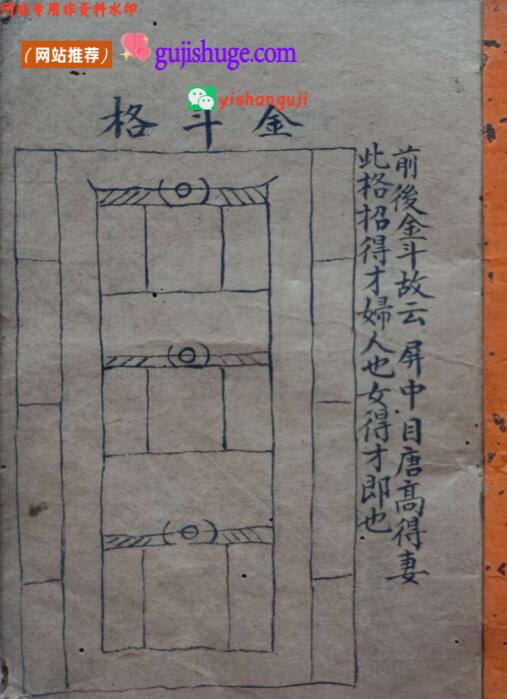 网站专用非资料水印
(网站推荐)
gujishuge.com
yishanguji
金斗格
前後金斗故云屏中目唐高得妻
此格招得才婦人也女得才即也